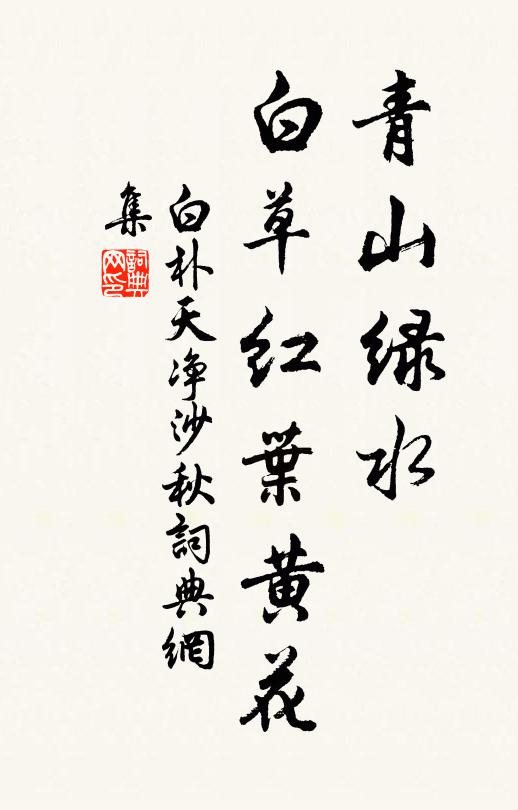 青山绿水
白草红葉黄花
白朴天净沙秋詞典網
集
詞典网印